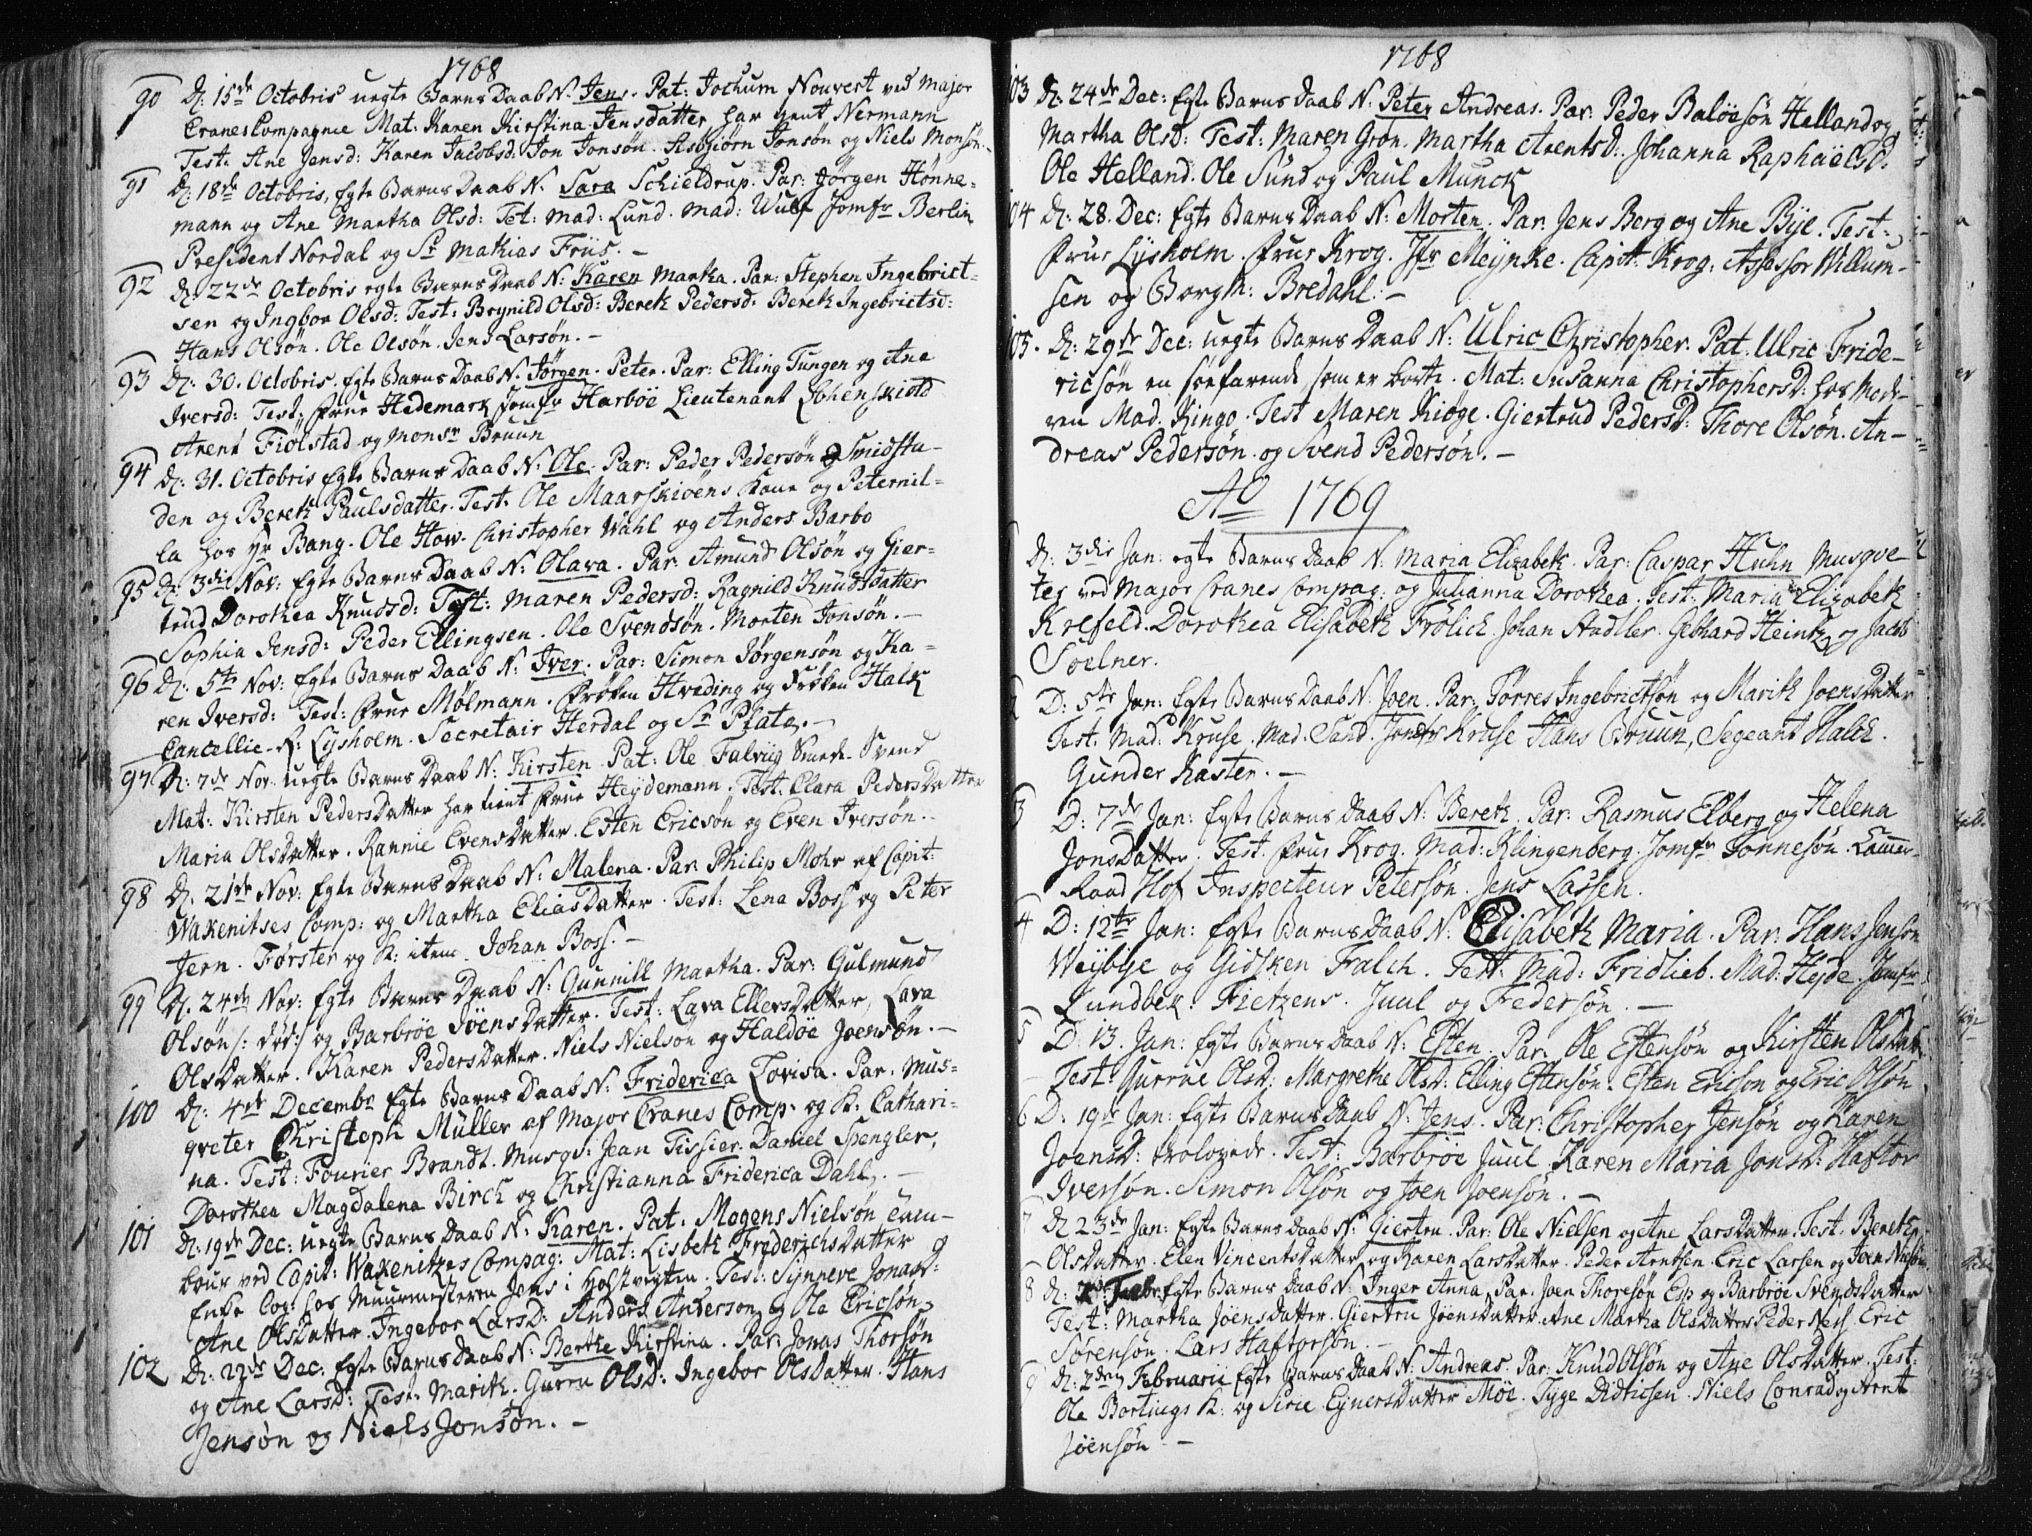 1768
90 D: 15de Octobris uegte Barns Daab N: Jens. Pat: Jochum Nouvert ved Major
Cranes Compagnie Mat: Karen Kirstina Jensdatter har tient Nermann
Test: Ane Jensd: Karen Jacobsd: Jon Jonsøn. Asbiørn Jonsøn og Niels Monsøn.
91 D: 18de Octobris, Egte Barns Daab N: Sara Schieldrup. Par: Jørgen Hønne-
mann og Ane Martha Olsd: Tet: Mad: Lund. Mad: Wulf Jomfr Berlin
President Nordal og Sr Mathias Friis. -
92 D: 22de Octobris egte Barns Daab N: Karen Martha. Par: Stephen Ingebrict-
sen og Ingbor Olsd: Test: Brynild Olsd: Bereth Pedersd: Bereth Ingebrictsd:
Hans Olsøn. Ole Olsøn. Jens Larsøn. -
93 D: 30. Octobris. Egte Barns Daab N: Jørgen. Peter. Par: Elling Tungen og Ane
Iversd: Test: Frue Hedemark Jomfr Harboe Lieutenant Lohenskiold
Arent Fiølstad og Monsr Bruun
94 D: 31. Octobris Egte Barns Daab N: Ole. Par: Peder Pedersøn Smidsta-
den og Bereth Paulsdatter. Test: Ole Maarskiøens Kone og Peternil-
la hos Hr Bang. Ole How. Christopher Wahl og Anders Barbo
95 D: 3die Nov: Egte Barns Daab N: Olava. Par. Amund Olsøn og Gier-
trud Dorothea Knudsd: Test: Maren Pedersd: Ragnild Knudsdatter
Sophia Jensd: Peder Ellingsen. Ole Svendsøn. Morten Jonsøn. -
96 D: 5te Nov: Egte Barns Daab N: Iver. Par: Simon Jørgensøn og Ka-
ren Iversd: Test: Frue Mølmann. Frøken Hveding og Frøken Halk
Cancellie-R: Lysholm. Secretair Herdal og Sr Plate. -
97 D: 7de Nov: uegte Barns Daab N: Kirsten. Pat: Ole Falviig Smede-Svend
Mat: Kirsten Pedersdatter har tient Frue Heydemann. Test: Clara Pedersdatter
Maria Olsdatter. Rannie Evensdatter. Esten Ericsøn og Even Iversøn.
98 D: 21de Nov: Egte Barns Daab N: Malena. Par. Philip Mohr af Capit:
Wakenitses Comp: og Martha Eliasdatter. Test: Lena Boss og Peter
Jern. Førster og K: item Johan Boss. -
99 D: 24de Nov: Egte Barns Daab N: Gunnill Martha. Par: Gulmund
Olsøn /: død:/ og Barbrøe Jøensdatter. Test: Lava Ellersdatter, Lava
Olsdatter. Karen Pedersdatter. Niels Nielsøn og Haldøe Joensøn. -
100 D: 4de Decembr Egte Barns Daab N: Friderica Lovisa. Par: Mus-
qveter Christoph Müller af Major Cranes Comp: og K: Cathari-
na. Test: Fourier Brandt. Musqv: Jean Tissier. Daniel Spengler,
Dorothea Magdalena Birch og Christianna Friderica Dahl. -
101 D: 19de Dec: uegte Barns Daab N: Karen. Pat: Mogens Nielsøn Tam-
bour ved Capit: Wakenitzes Compag: Mat: Lisbeth Frederichsdatter
Enke log: hos Muurmesteren Jens i Holstvegten. Test: Synneve Jonasd:
Ane Olsdatter. Ingebor Larsd: Anders Anderson og Ole Ericsøn
102 D: 22de Dec: Egte Barns Daab N: Berthe Kirstina. Par: Jonas Thorsøn
og Ane Larsd: Test: Marith. Gurru Olsd: Ingebor Olsdatter. Hans
Jensøn og Niels Jonsøn. -
1768
103 D: 24de Dec: Egte Barns Daab N: Peter Andreas. Par: Peder Baløesøn Helland og
Martha Olsd: Test: Maren Grøn. Martha Arentsd: Johanna Raphaëlsd:
Ole Helland. Ole Sund og Paul Munck
104 D: 28. Dec: Egte Barns Daab N: Morten. Par. Jens Berg og Ane Bye. Test:
Frue Lysholm. Frue Krog. Jfr Meynke. Capit: Krog. Assessor Willum-
sen og Borgm: Bredahl. -
105. D: 29de Dec: uegte Barns Daab N: Ulric Christopher. Pat: Ulric Fride-
ricsøn en søefarende, som er borte. Mat: Susanna Christophersd: hos Mod-
ren Mad. Kingo. Test Maren Kiøge. Giertrud Pedersd: Thore Olsøn. An-
dreas Pedersøn og Svend Pedersøn. -
Ao 1769
D: 3die Jan: egte Barns Daab N: Maria Elizabeth. Par: Caspar Huhn Musqve-
ter ved Major Cranes Compag: og Julianna Dorothea. Test: Maria Elizabeth
Krefeld. Dorothea Elisabeth Frølich. Johan Stadler. Gebhard Heintz og Jacob
Soelner.
2 D: 5te Jan: Egte Barns Daab N: Joen. Par: Tørres Ingebrictsøn og Marith Joensdatter
Test: Mad: Kruse. Mad. Sand. Jomfr Kruse Hans Bruun, Segeant Halck.
Gunder Kasten. -
3 D: 7de Jan: Egte Barns Daab N: Bereth. Par: Rasmus Elberg og Helena
Jonsdatter. Test. Frue Krog. Mad: Klingenberg. Jomfr Tønnesøn. Camer-
Raad Hof Inspecteur Petersøn. Jens Lassen.
4 D: 12te Jan: Egte Barns Daab N: Elisabeth Maria. Par: Hans Jenson
Weybye og Gidsken Falch. Test: Mad: Fridlieb. Mad: Heyde. Jomfr
Lundbek. Fietzens. Juul og Federsøn. -
5 D: 13. Jan: Egte Barns Daab N: Esten. Par: Ole Estensøn og Kirsten Olsdatt
Test: Gurrue Olsd: Margrethe Olsd: Elling Estensøn. Esten Ericson og Eric Olsøn
6 D: 19de Jan: Egte Barns Daab N: Jens. Par: Christopher Jensøn og Karen
Joensd: trolovede. Test: Barbrøe Juul. Karen Maria Jonsd: Haftor
Iversøn. Simon Olsøn og Joen Joensøn. -
7 D 23de Jan: Egte Barns Daab N: Giertru. Par: Ole Nielsen og Ane Larsdatter. Test: Bereth
Olsdatter. Elen Vincentsdatter og Karen Larsdatter. Peder Arentsen. Eric Larsen og Joen Nielsøn
8 D: Febr: Egte Barns Daab N: Inger Anna. Par. Joen Thoresøn Esp og Barbrøe Svendsdatter
Test: Martha Jøensdatter. Giertru Jøensdatter. Ane Martha Olsdatter Peder Ness. Eric
Sørensøn. Lars Haftorsøn. -
9 D: 2den Februarii Egte Barns Daab N: Andreas. Par: Knud Olsøn og Ane Olsdatter. Test:
Ole Bortnegs K: og Sirie Eynersdatter Møe. Tyge Didricsen. Niels Conrad og Arent
Jøensøn -